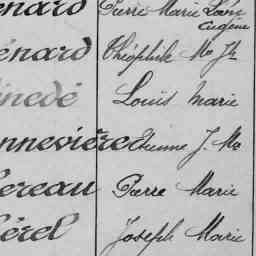 énard Pierre Marie Léon
Eugène
énard Théophile Me Jh
inedé Louis Marie
nnevière Étienne J. Me
ereau Pierre Marie
érel Joseph Marie